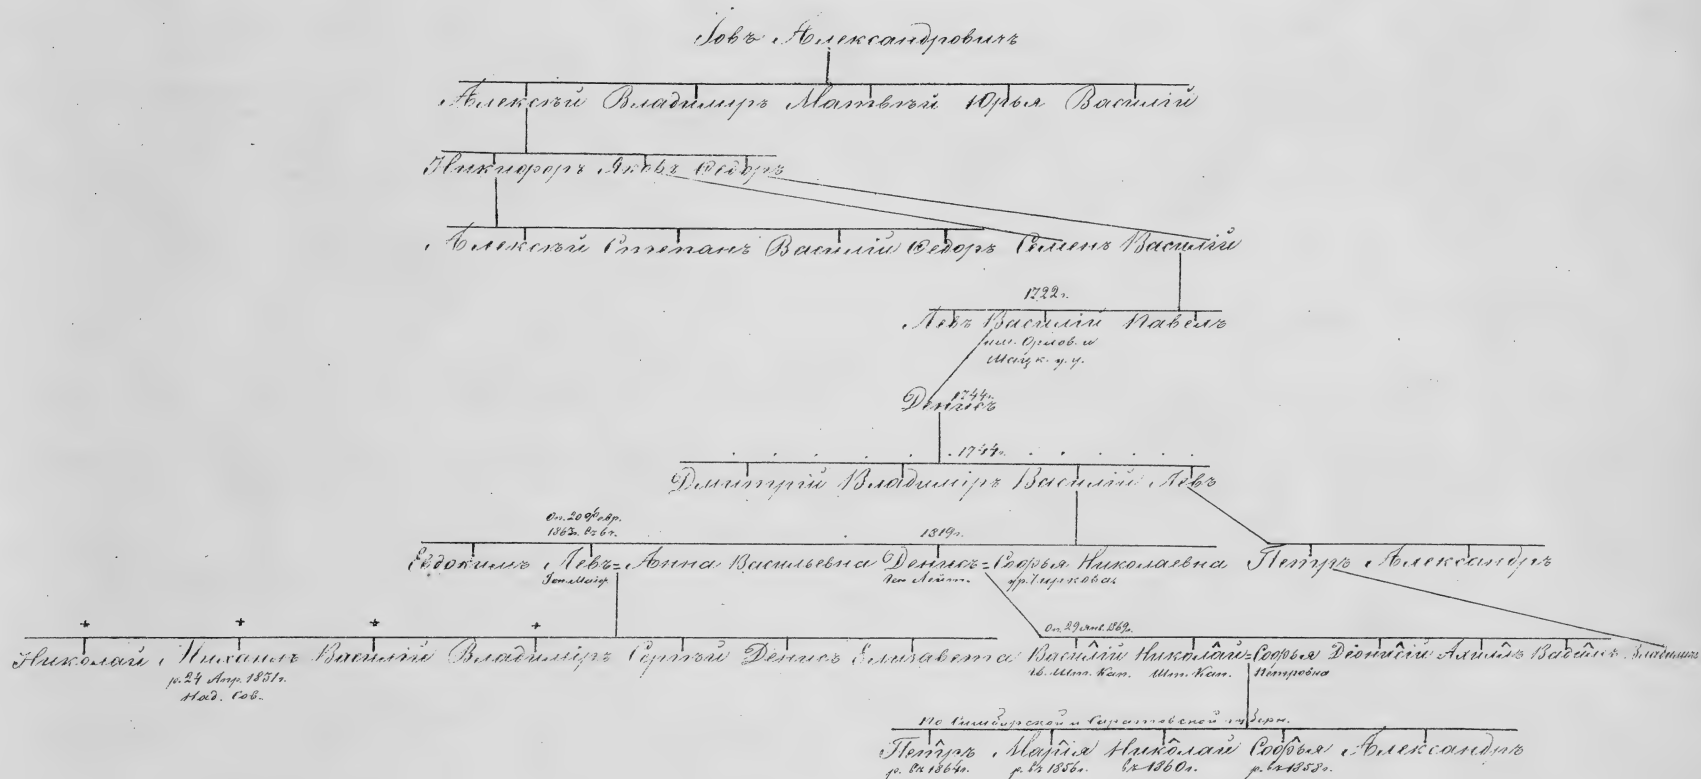 Іовъ Александровичъ
Алексѣй Владимиръ Матвѣй Юрья Василій
Никифоръ Яковъ Ѳедоръ
Алексѣй Степанъ Василій Ѳедоръ Семенъ Василій
1722г.
Левъ Василій Павелъ
пом. Орлов. и
Мацк. у. у.
1744г.
Денисъ
1744г.
Дмитрій Владиміръ Василій Левъ
Оп. 20 Февр.
1863г. 1819г.
Евдокимъ Левъ = Анна Васильевна Денисъ = Софья Николаевна Петръ Александръ
Ген. Маіор. Ген. Лейт. ур. Чиркова
+ + + + Оп. 29 Янв. 1869г.
Николай Михаилъ Василій Владиміръ Сергѣй Денисъ Елизавета Василій Николай = Софья Діонисій Ахиллъ Вадимъ Владиміръ
р. 24 Апр. 1831г. Шт. Кап. Шт. Кап. Петровна
Над. Сов.
По Симбирской и Саратовской губерн.
Петръ Марія Николай Софья Александръ
р. въ 1864г. р. въ 1856г. въ 1860г. р. въ 1858г.